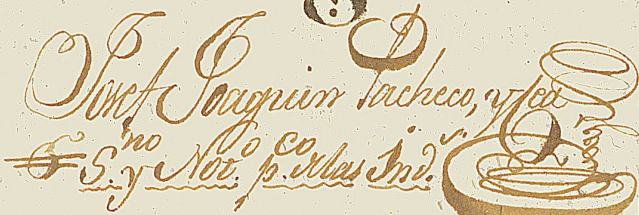 Josef Joaquin Pacheco, y Zea
S.no y Not.o p.co de las Ind.s